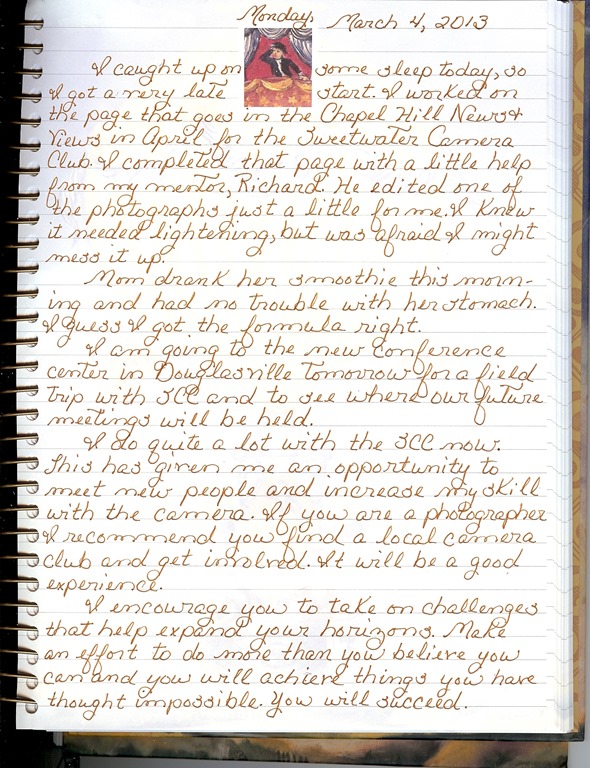 Monday, March 4, 2013
I caught up on some sleep today, so
I got a very late start. I worked on
the page that goes in the Chapel Hill News &
Views in April for the Sweetwater Camera
Club. I completed that page with a little help
from my mentor, Richard. He edited one of
the photographs just a little for me. I knew
it needed lightening, but was afraid I might
mess it up.
Mom drank her smoothie this morn-
ing and had no trouble with her stomach.
I guess I got the formula right.
I am going to the new conference
center in Douglasville tomorrow for a field
trip with SCC and to see where our future
meetings will be held.
I do quite a lot with the SCC now.
This has given me an opportunity to
meet new people and increase my skill
with the camera. If you are a photographer
I recommend you find a local camera
club and get involved. It will be a good
experience.
I encourage you to take on challenges
that help expand your horizons. Make
an effort to do more than you believe you
can and you will achieve things you have
thought impossible. You will succeed.